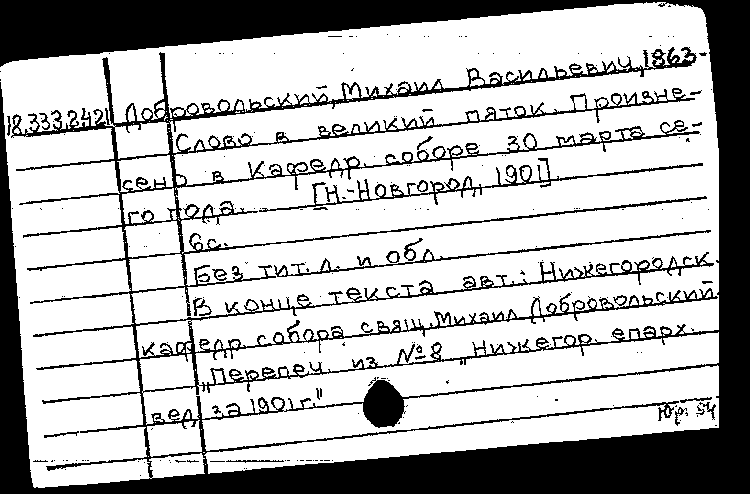 18.333.2.421 Добровольский, Михаил Васильевич, 1863-
Слово в великий пяток. Произне-
сено в Кафедр. соборе 30 марта се-
го года. [Н.-Новгород, 1901].
6с.
Без тит. л. и обл.
В конце текста авт.: Нижегородск.
кафедр. собора свящ. Михаил Добровольский.
„Перепеч. из №8 „Нижегор. епарх.
вед. за 1901г."
Юр. 54